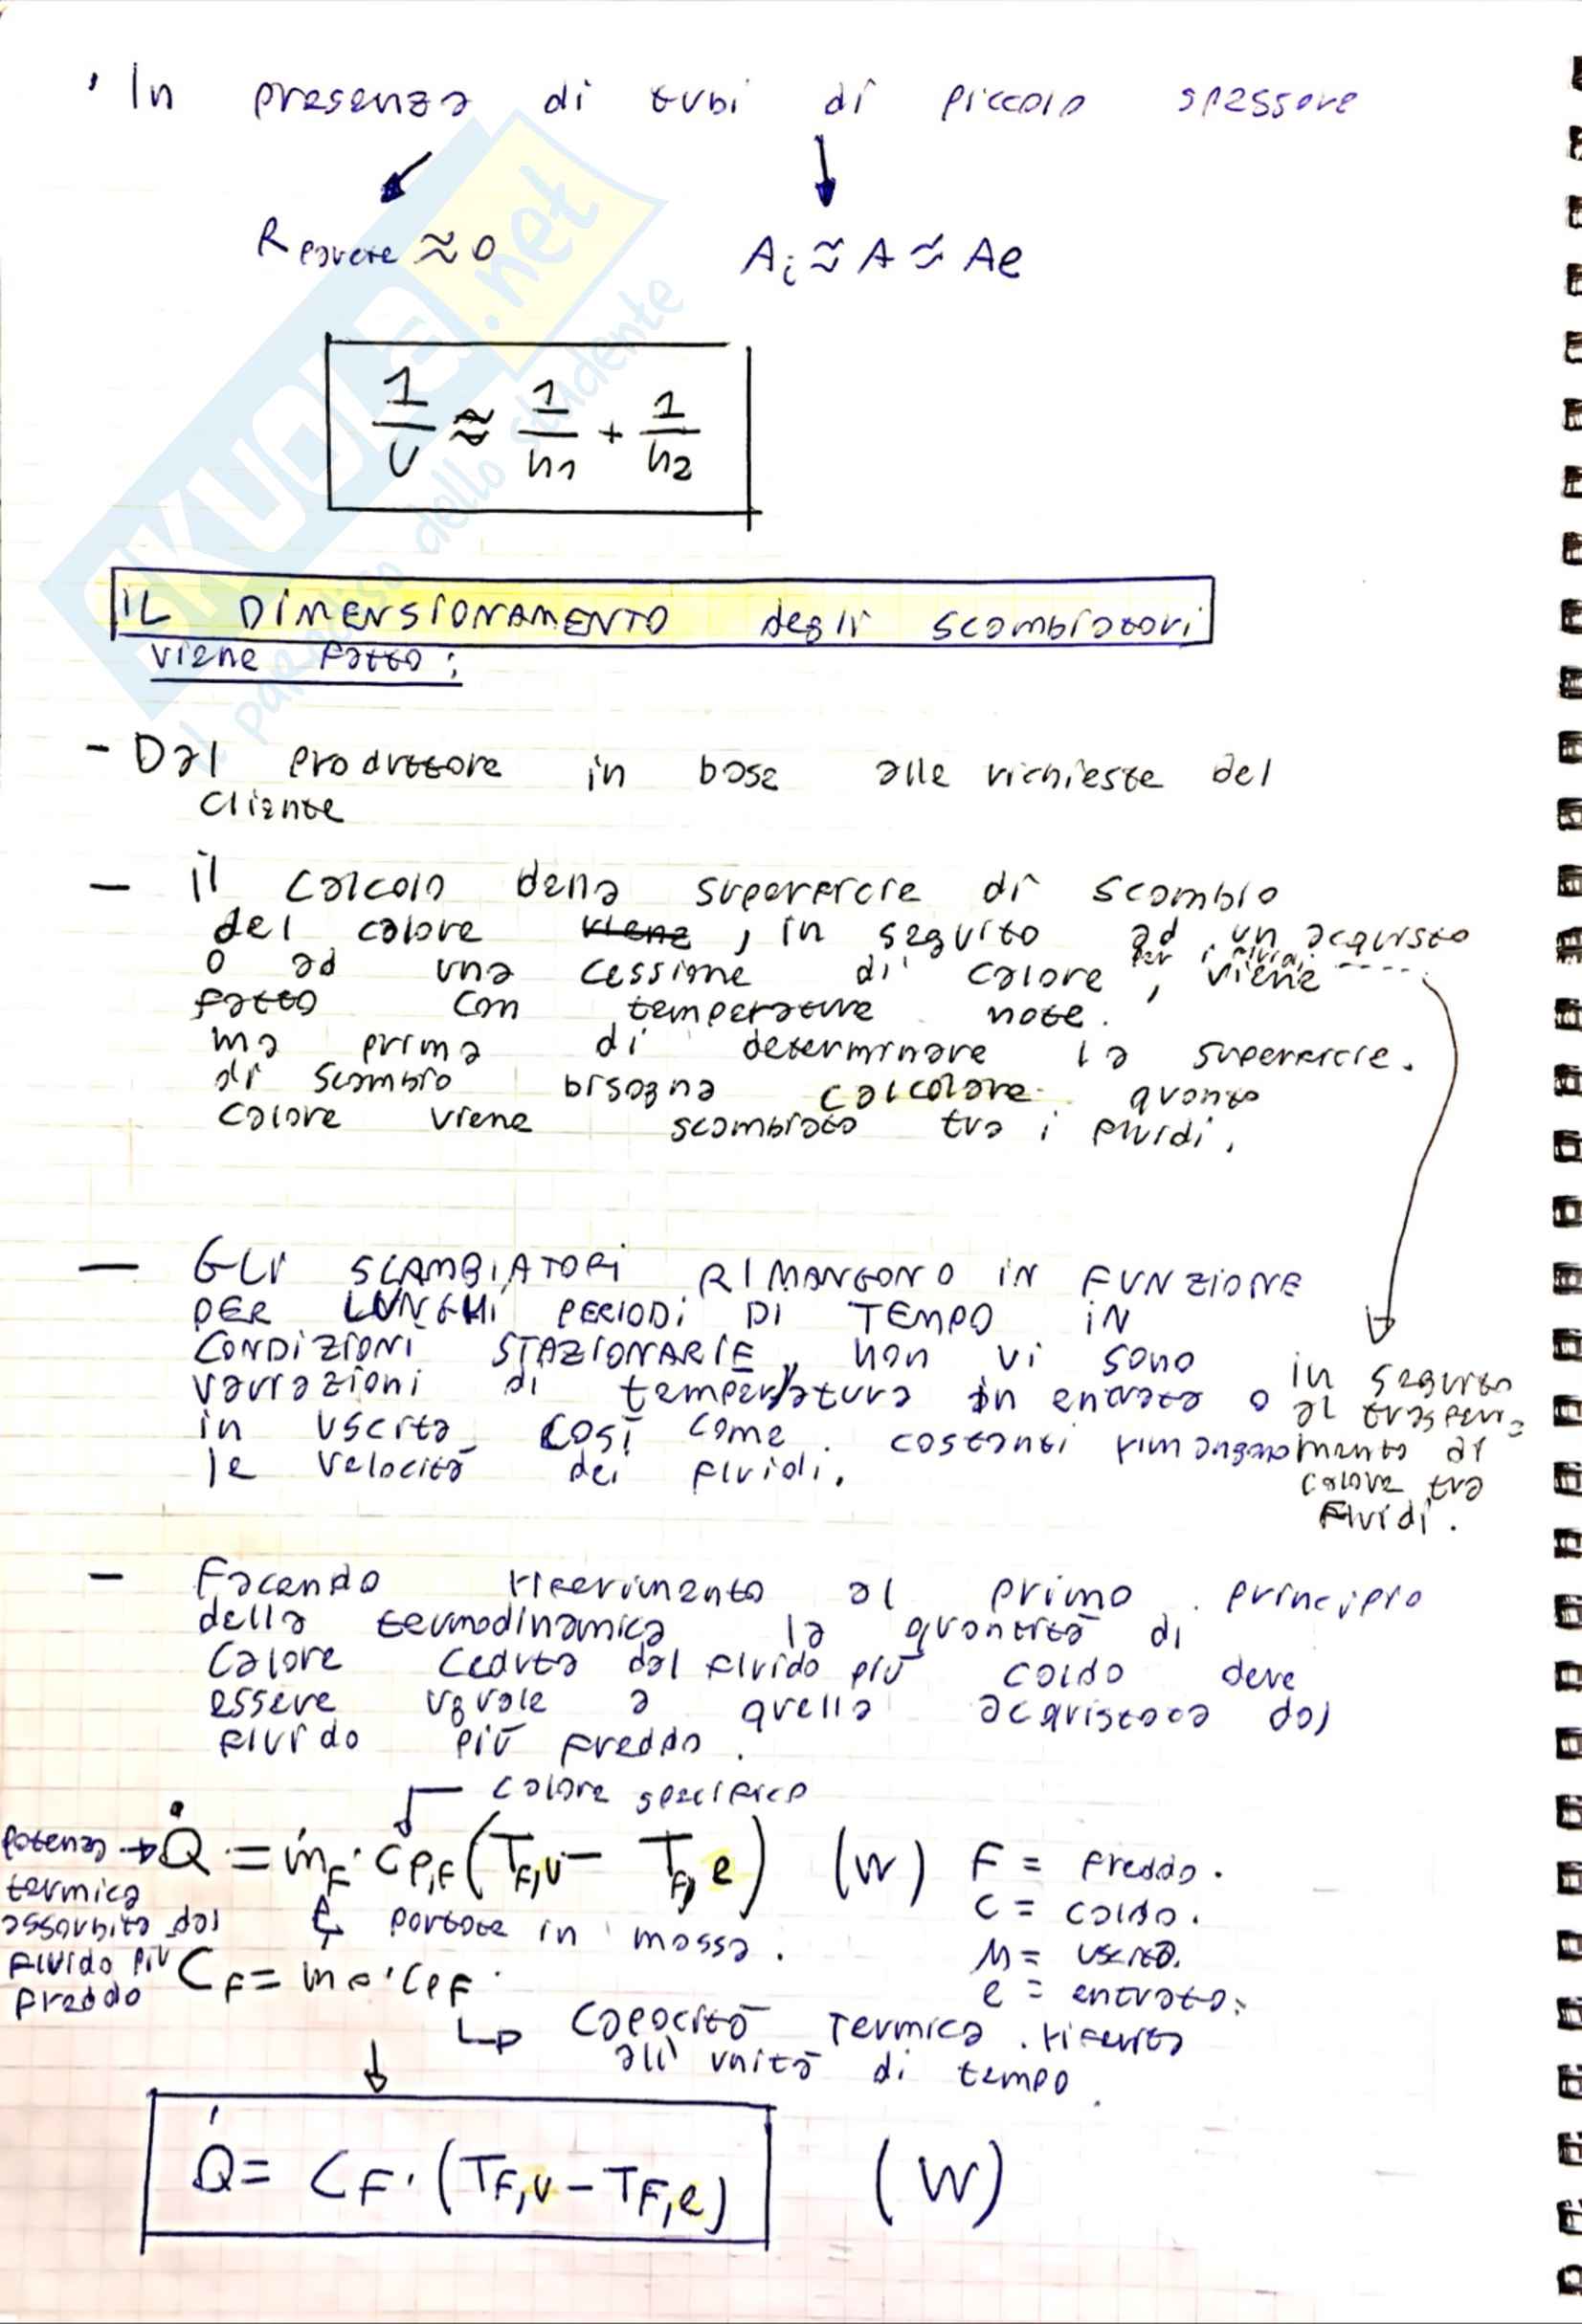 ' In presenza di tubi di piccolo spessore
R parete ≈ 0
Ai ≈ A ≈ Ae
1/U ≈ 1/h1 + 1/h2
IL DIMENSIONAMENTO degli scambiatori
viene fatto:
- Dal produttore in base alle richieste del
cliente
- il calcolo della superficie di scambio
del calore viene, in seguito ad un acquisto
o ad una cessione di calore, viene ----
per i fluidi
fatto con temperature note.
ma prima di determinare la superficie.
di scambio bisogna calcolare quanto
calore viene scambiato tra i fluidi.
in seguito
al trasferi-
mento di
calore tra
fluidi.
- GLI SCAMBIATORI RIMANGONO IN FUNZIONE
PER LUNGHI PERIODI DI TEMPO IN
CONDIZIONI STAZIONARIE, non vi sono
variazioni di temperatura in entrata o
in uscita così come costanti rimangono
le velocità dei fluidi.
- Facendo riferimento al primo principio
della termodinamica la quantità di
calore ceduta dal fluido più caldo deve
essere uguale a quella acquistata dal
fluido più freddo.
calore specifico
potenza → Q̇ = ṁF · cp,F (TF,u - TF,e) (W)
termica
assorbita dal
fluido più
freddo
portate in massa.
F = freddo.
C = caldo.
u = uscita.
e = entrata.
CF = mF · cpF
capacità termica riferita
all'unità di tempo
Q̇ = CF · (TF,u - TF,e) (W)
SKUOLA.net
il paradiso dello studente